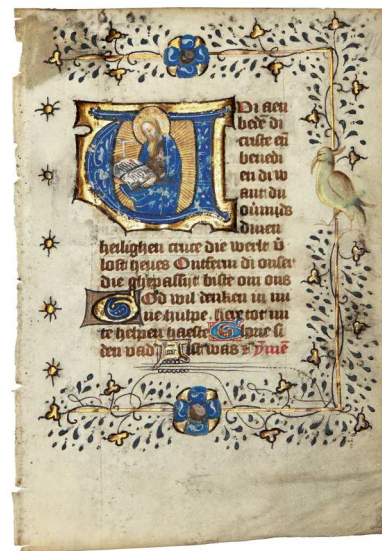 Wi aen
bedē di
criste eñ
benedi
en di w
ant du
ouermids
dinen
heilighen cruce die werlt v̄
loste heues Ontferm di onser
die ghepassijt biste om ons
God wil denken in mi
ne hulpe. here tot mi
te helpen haeste Glorie si
den vad Alst was ⁊ ymē